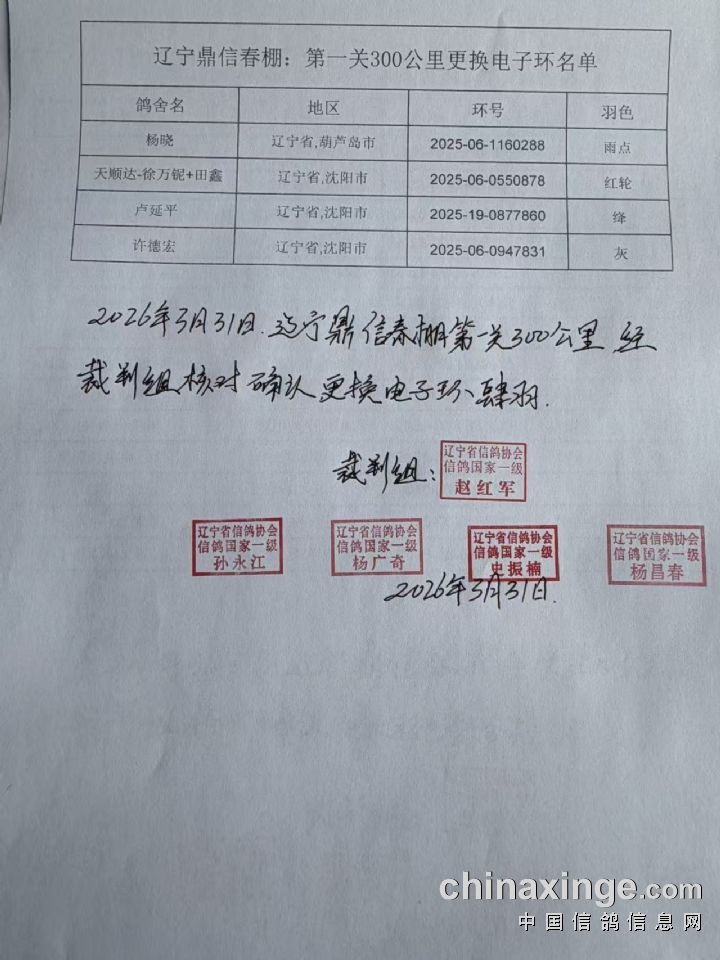 辽宁鼎信春棚：第一关300公里更换电子环名单
鸽舍名 地区 环号 羽色
杨晓 辽宁省,葫芦岛市 2025-06-1160288 雨点
天顺达-徐万铌+田鑫 辽宁省,沈阳市 2025-06-0550878 红轮
卢延平 辽宁省,沈阳市 2025-19-0877860 绛
许德宏 辽宁省,沈阳市 2025-06-0947831 灰
2026年3月31日.辽宁鼎信春棚第一关300公里 经
裁判组核对确认更换电子环、肆羽.
裁判组：
辽宁省信鸽协会
信鸽国家一级
赵红军
辽宁省信鸽协会
信鸽国家一级
孙永江
辽宁省信鸽协会
信鸽国家一级
杨广奇
辽宁省信鸽协会
信鸽国家一级
史振楠
辽宁省信鸽协会
信鸽国家一级
杨昌春
2026年3月31日.
chinaxinge.com
中国信鸽信息网